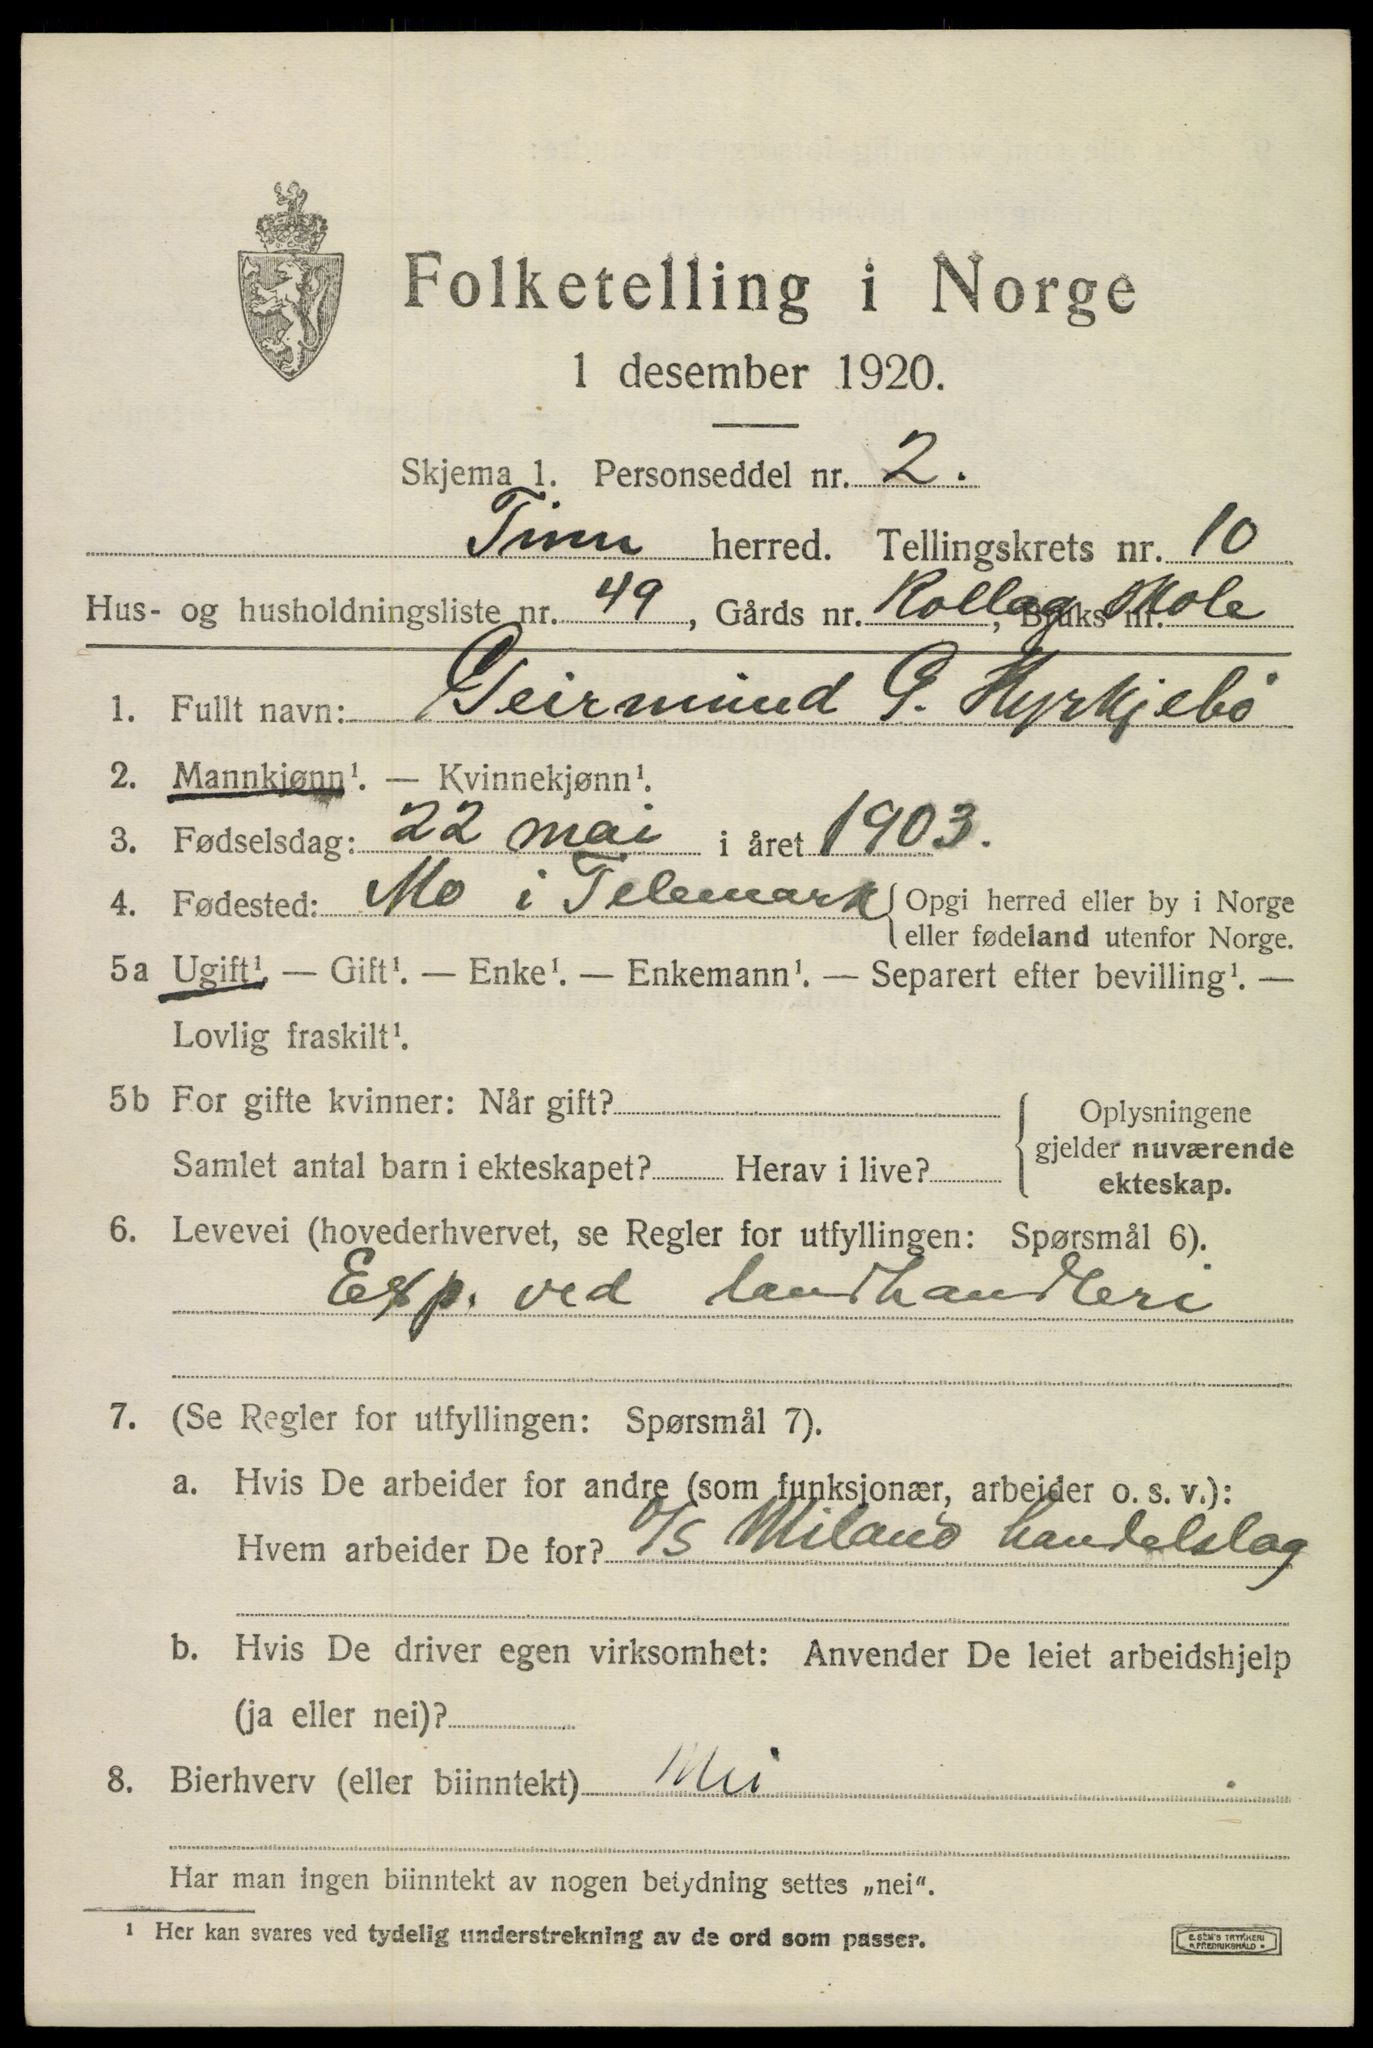 Folketelling i Norge
1 desember 1920.
Skjema 1. Personseddel nr. 2.
Tinn herred. Tellingskrets nr. 10
Hus- og husholdningsliste nr. 49, Gårds nr. Rollag Skole, Bruks nr.
1. Fullt navn: Geirmund G. Hyrkjebö
2. Mannkjønn¹. — Kvinnekjønn¹.
3. Fødselsdag: 22 mai i året 1903.
4. Fødested: Mo i Telemark { Opgi herred eller by i Norge
eller fødeland utenfor Norge.
5a Ugift¹. — Gift¹. — Enke¹. — Enkemann¹. — Separert efter bevilling¹. —
Lovlig fraskilt¹.
5b For gifte kvinner: Når gift?
Samlet antal barn i ekteskapet? Herav i live?
Oplysningene
gjelder nuværende
ekteskap.
6. Levevei (hovederhvervet, se Regler for utfyllingen: Spørsmål 6).
Exp. ved landhandleri
7. (Se Regler for utfyllingen: Spørsmål 7).
a. Hvis De arbeider for andre (som funksjonær, arbeider o. s. v.):
Hvem arbeider De for? Milano handelslag
b. Hvis De driver egen virksomhet: Anvender De leiet arbeidshjelp
(ja eller nei)?
8. Bierhverv (eller biinntekt) Nei
Har man ingen biinntekt av nogen betydning settes „nei“.
¹ Her kan svares ved tydelig understrekning av de ord som passer.
E. SEM'S TRYKKERI
FREDRIKSHALD